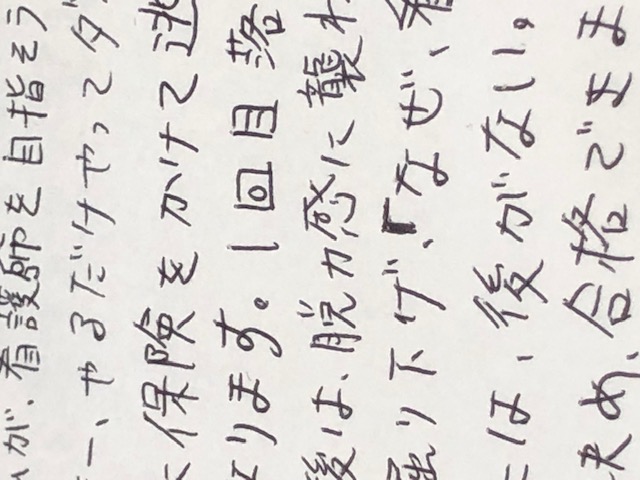 が、看護師を目指そう
一、やるだけやってダ
保険をかけて逃
ります。1回目落
後は、脱力感に襲わ
掘り下げ、「なぜ、看
は、後がない。
決め、合格できま